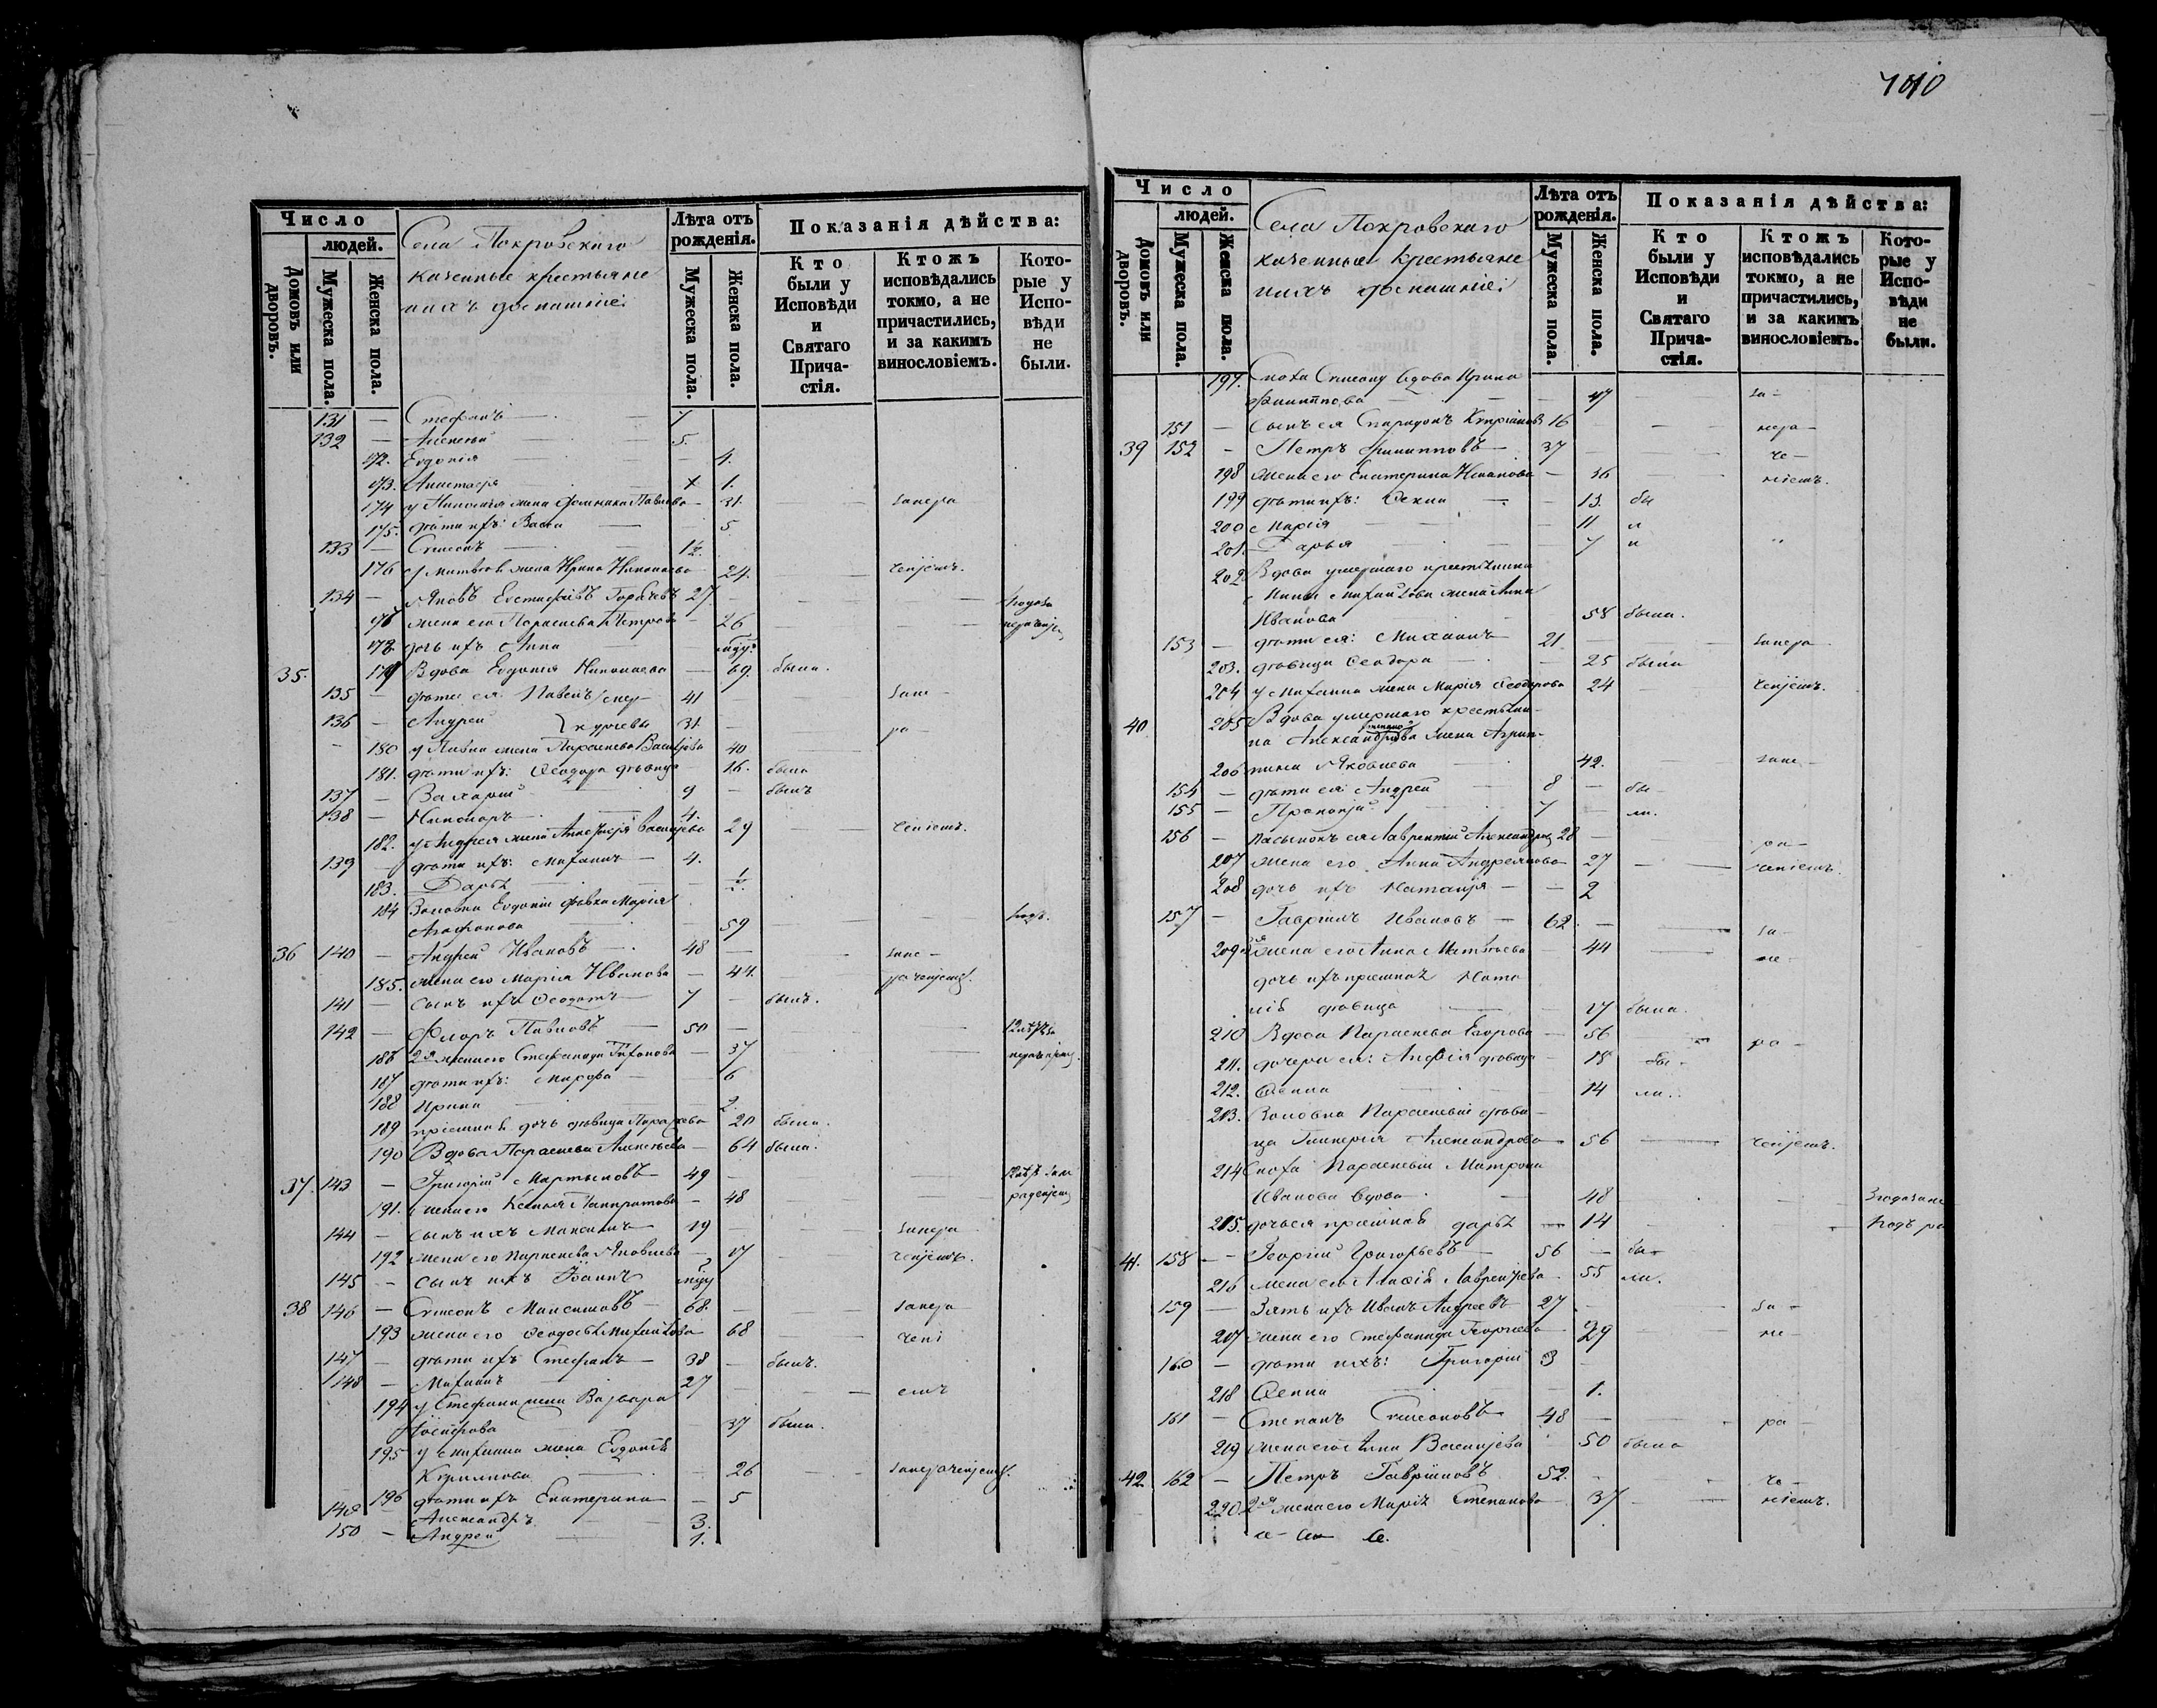 Число
людей.
Домовъ или дворовъ.
Мужеска пола.
Женска пола.
Села Покровскаго
казенные крестьяне
и ихъ домашніе:
Лѣта отъ
рожденія.
Мужеска пола.
Женска пола.
Показанія дѣйства:
Кто были у Исповѣди и Святаго Прича-стія.
Ктожъ исповѣдались токмо, а не причастились, и за какимъ винословіемъ.
Кото-рые у Испо-вѣди не были.
131 — Стефанъ — 7
132 — Алексѣй — 5.
172. Евдокія — 4.
173. Анастасія 1.
174 у Николая жена Павлова — 31. — занера
175. дѣти ихъ: Васса — 5.
133 — Симеонъ — 1½.
176 у Матвѣя жена Ирина Николаева — 24. — ченіемъ.
134 — Яковъ Евстафіевъ 27 —
жена его Параскева Петрова — 26
178. дочь ихъ Анна —
35. 179 Вдова Евдокія Николаева — 69. была.
135 — дѣти ея: Павелъ 41 — зане-
136 — Андрей 31. — ра
180 у Павла жена Параскева Васильева 40
181. дѣти ихъ: Ѳеодора дѣвица 16. была
137 — Захарій 9 — былъ
138 — Никаноръ — 4.
182. у Андрея жена Васильева 29 — ченіемъ.
139 — дѣти ихъ: Михаилъ — 4.
183. Дарья — ½.
184 Золовка Евдокіи дѣвка Марія
Агафонова 59
36 140 — Андрей Ивановъ — 48 — зане-
185. жена его Марія Иванова — 44. раченіемъ.
141 — сынъ ихъ Ѳеодотъ — 7 — былъ.
142 — Флоръ Павловъ — 50 —
186 2я жена его Стефанида Тихонова — 37
187 дѣти ихъ: Марѳа — 6
188 Ирина 2.
189 пріемная дочь дѣвица Параскева 20 была.
190 Вдова Параскева Алексѣева — 64 была.
37. 143 — Григорій Мартыновъ — 49 —
191. жена его Ксенія Панкратова — 48
144 — сынъ ихъ Максимъ — 19 — занера
192 жена его Параскева Яковлева — 17 ченіемъ.
145 — сынъ ихъ Іоаннъ
38 146 — Симеонъ Максимовъ — 68. — занера
193 жена его Ѳеодосья Михайлова 68 чені
147 — дѣти ихъ Стефанъ — 38 — былъ.
148 — Михаилъ 27 — емъ
194 у Стефана жена Варвара
Іосифова 37 была.
195 у Михаила жена Евдокія
Кирилова 26 — занераченіемъ.
196 дѣти ихъ Екатерина — 5
149 — Александръ 3.
150 — Андрей 1.
Число
людей.
Домовъ или дворовъ.
Мужеска пола.
Женска пола.
Села Покровскаго
казенные крестьяне
и ихъ домашніе:
Лѣта отъ
рожденія.
Мужеска пола.
Женска пола.
Показанія дѣйства:
Кто были у Исповѣди и Святаго Прича-стія.
Ктожъ исповѣдались токмо, а не причастились, и за какимъ винословіемъ.
Кото-рые у Испо-вѣди не были.
197. Сноха Симеону вдова Ирина
Филиппова 47 — за-
151 — сынъ ея Спиридонъ Кипріановъ 16 — нера-
39 152 — Петръ Филипповъ — 37 — че-
198 жена его Екатерина — 36 — ніемъ.
199 дѣти ихъ: Ѳекла — 13. бы
200 Марія — 11 л
201. Дарья — 7 и
202 Вдова умершаго крестьянина
Михайлова жена Анна
Иванова 58 была.
153 — дѣти ея: Михаилъ — 21 — занера-
203. дѣвица Ѳеодора — 25 была
204 у Михаила жена Марія Ѳеодорова 24 ченіемъ.
40 205 Вдова умершаго крестьяни-
на Александрова жена Агрип-
206 пина Яковлева 42. — зане-
154 — дѣти ея: Андрей — 8 — бы-
155 — Прокопій — 7 — ли.
156 — пасынокъ ея Лаврентій 28 — ра-
207 жена его Анна Андреянова — 27 — ченіемъ.
208 дочь ихъ Наталія — 2
157 — Гавріилъ Ивановъ — 62. — за-
209 2я жена его Анна Матвѣева 44 — не-
дочь ихъ пріемная Ната
лія дѣвица 17 была.
210 Вдова Параскева Егорова — 56 — ра-
211. дочери ея: дѣвица — 18 бы-
212. Ѳекла 14 ли.
213. Золовка Параскевіи дѣви-
ца Гликерія Александрова — 56 — ченіемъ.
214 Сноха Параскевіи Матрона
Иванова вдова 48
215. дочь ея пріемная Дарья — 14
41. 158 — Георгій Григорьевъ — 56 — бы-
216 жена его Лаврентьева 55 ли.
159 — Зять ихъ Иванъ Андреевъ 27 — за-
217 жена его Стефанида Георгіева 29 — не-
160 — дѣти ихъ: Григорій 3 —
218 Ѳекла 1.
161 — Степанъ Симеоновъ 48 — ра-
219 жена его Анна Васильева 50 была
42 162 — Петръ Гавріиловъ 52. — че-
220 2я жена его Марія Степанова 37 — ніемъ.